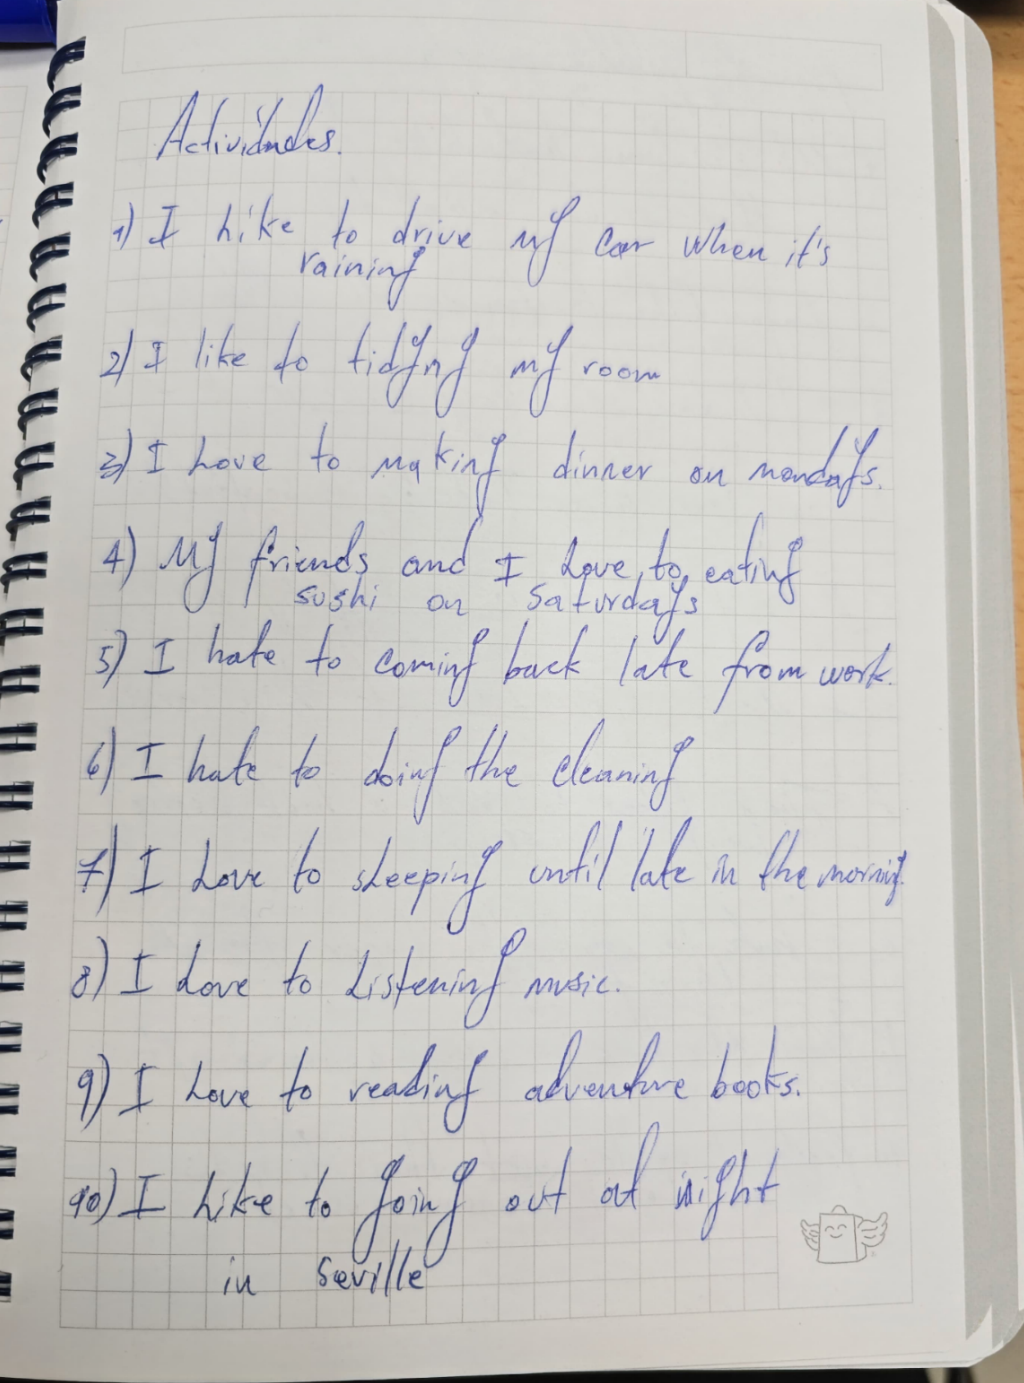 Actividades.
1) I Like to drive my car when it's
raining
2) I like to tidyng my room
3) I Love to making dinner on mondays.
4) My friends and I Love to eating
sushi on saturdays
5) I hate to coming back late from work.
6) I hate to doing the cleaning
7) I Love to sLeeping until late in the morning.
8) I Love to Listening music.
9) I Love to reading adventure books.
10) I Like to going out at night
in seville